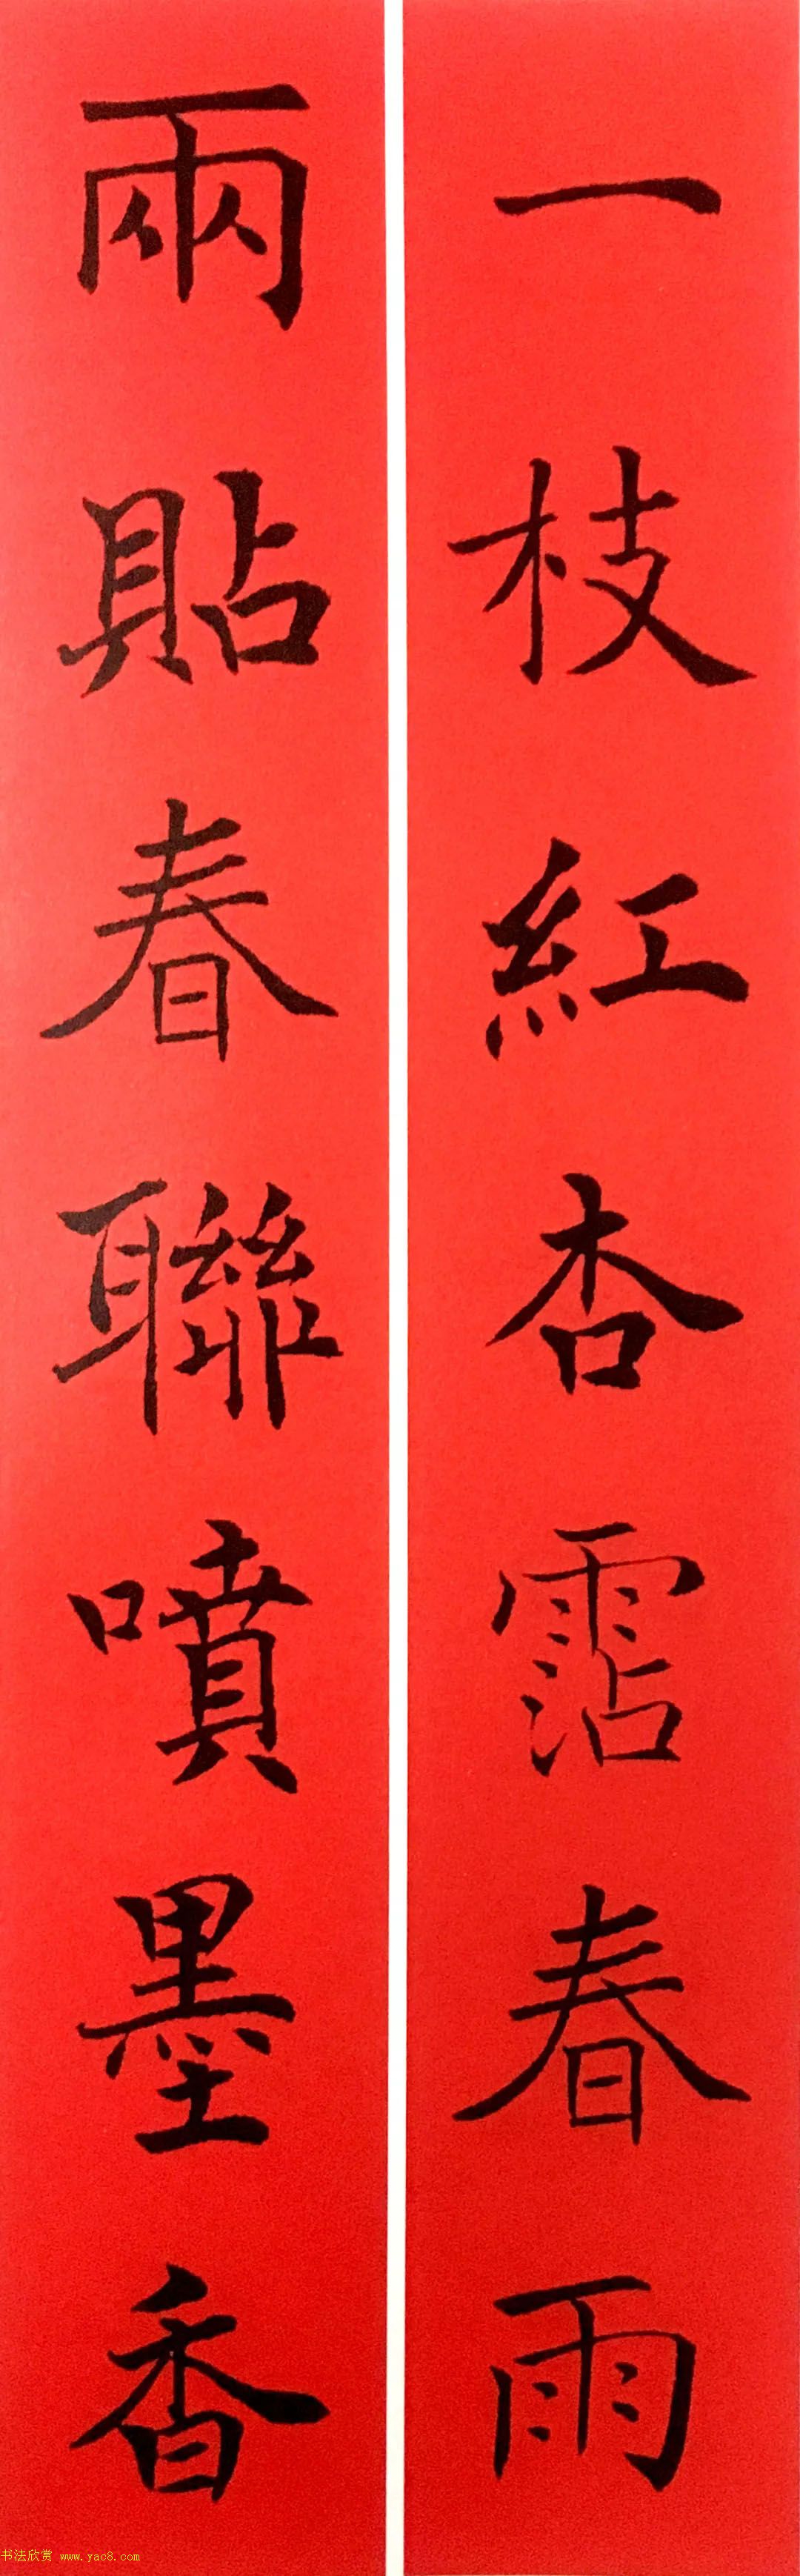 一枝紅杏霑春雨
兩貼春聯噴墨香
书法欣赏 www.yac8.com